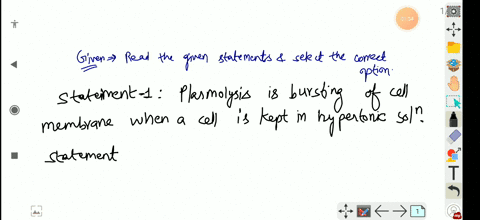 Given → Read the given statements & select the correct
option.
Statement-1: Plasmolysis is bursting of cell
membrane when a cell is kept in hypertonic solⁿ.
Statement